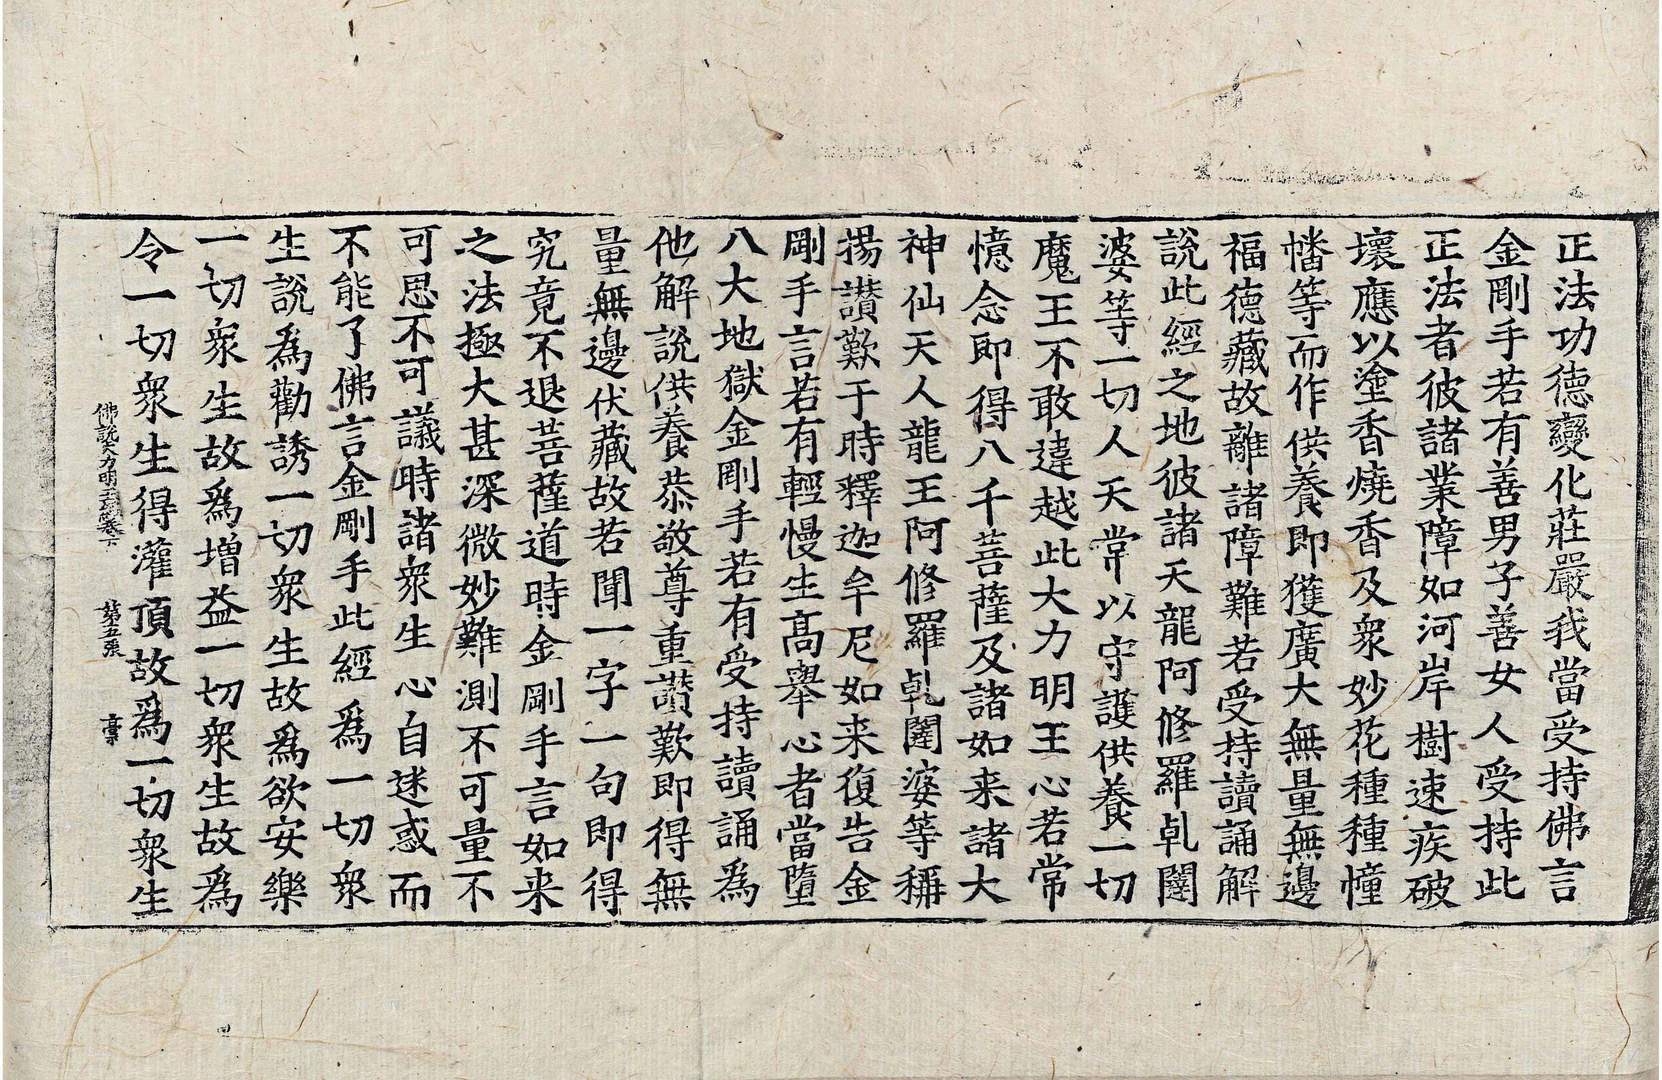 正法功德變化莊嚴我當受持佛言
金剛手若有善男子善女人受持此
正法者彼諸業障如河岸樹速疾破
壞應以塗香燒香及眾妙花種種幢
幡等而作供養即獲廣大無量無邊
福德藏故離諸障難若受持讀誦解
說此經之地彼諸天龍阿修羅乹闥
婆等一切人天常以守護供養一切
魔王不敢違越此大力明王心若常
憶念即得八千菩薩及諸如来諸大
神仙天人龍王阿修羅乹闥婆等稱
揚讃歎于時釋迦牟尼如来復告金
剛手言若有輕慢生高舉心者當墮
八大地獄金剛手若有受持讀誦為
他解說供養恭敬尊重讃歎即得無
量無邊伏藏故若聞一字一句即得
究竟不退菩薩道時金剛手言如来
之法極大甚深微妙難測不可量不
可思不可議時諸眾生心自迷惑而
不能了佛言金剛手此經為一切眾
生說為勸誘一切眾生故為欲安樂
一切眾生故為增益一切眾生故為
令一切眾生得灌頂故為一切眾生
佛說大力明王經卷下 第五張 稾